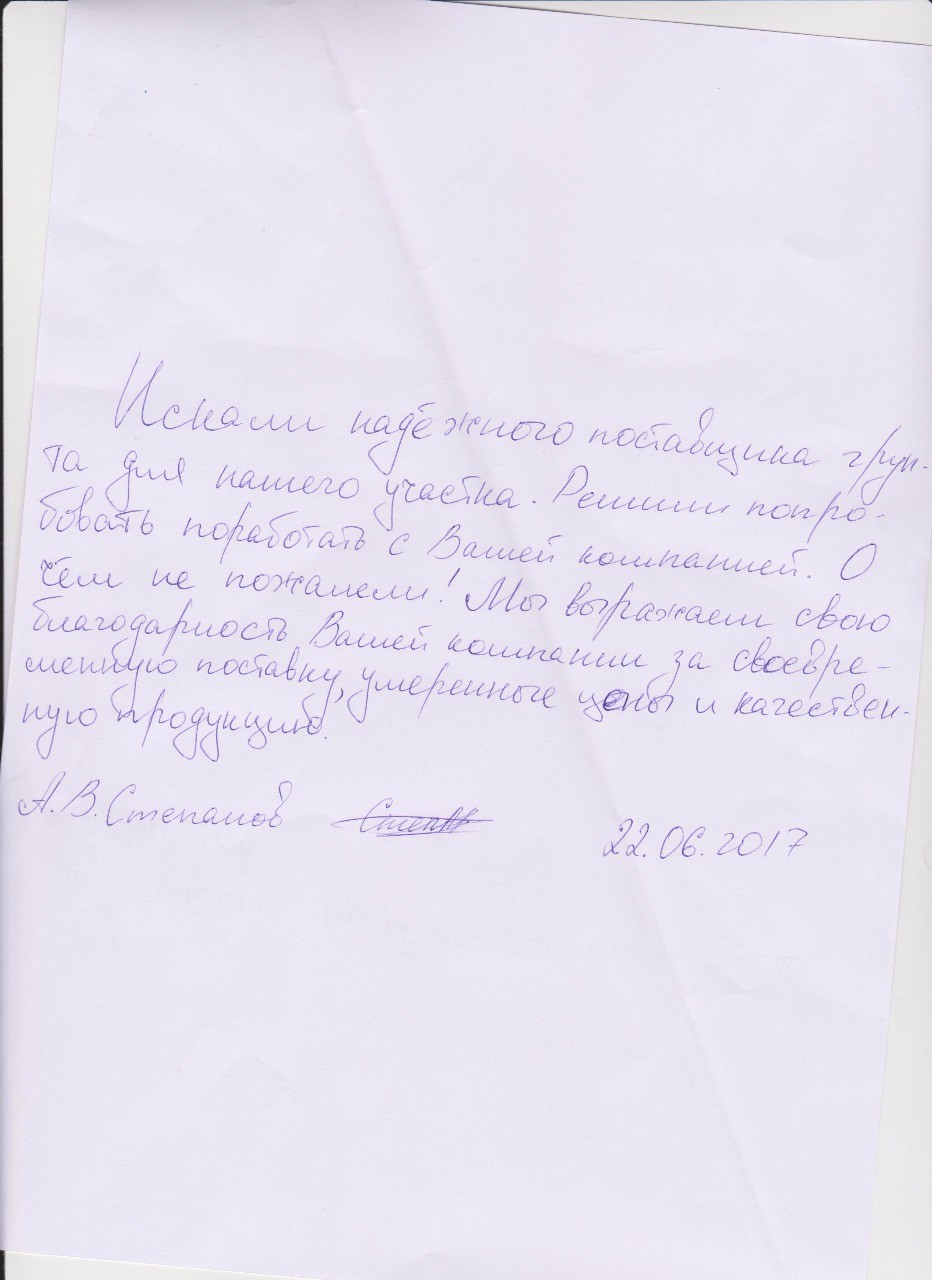 Искали надёжного поставщика грун-
та для нашего участка. Решили попро-
бовать поработать с Вашей компанией. О
чём не пожалели! Мы выражаем свою
благодарность Вашей компании за своевре-
менную поставку, умеренные цены и качествен-
ную продукцию.
А.В. Степанов
22.06.2017